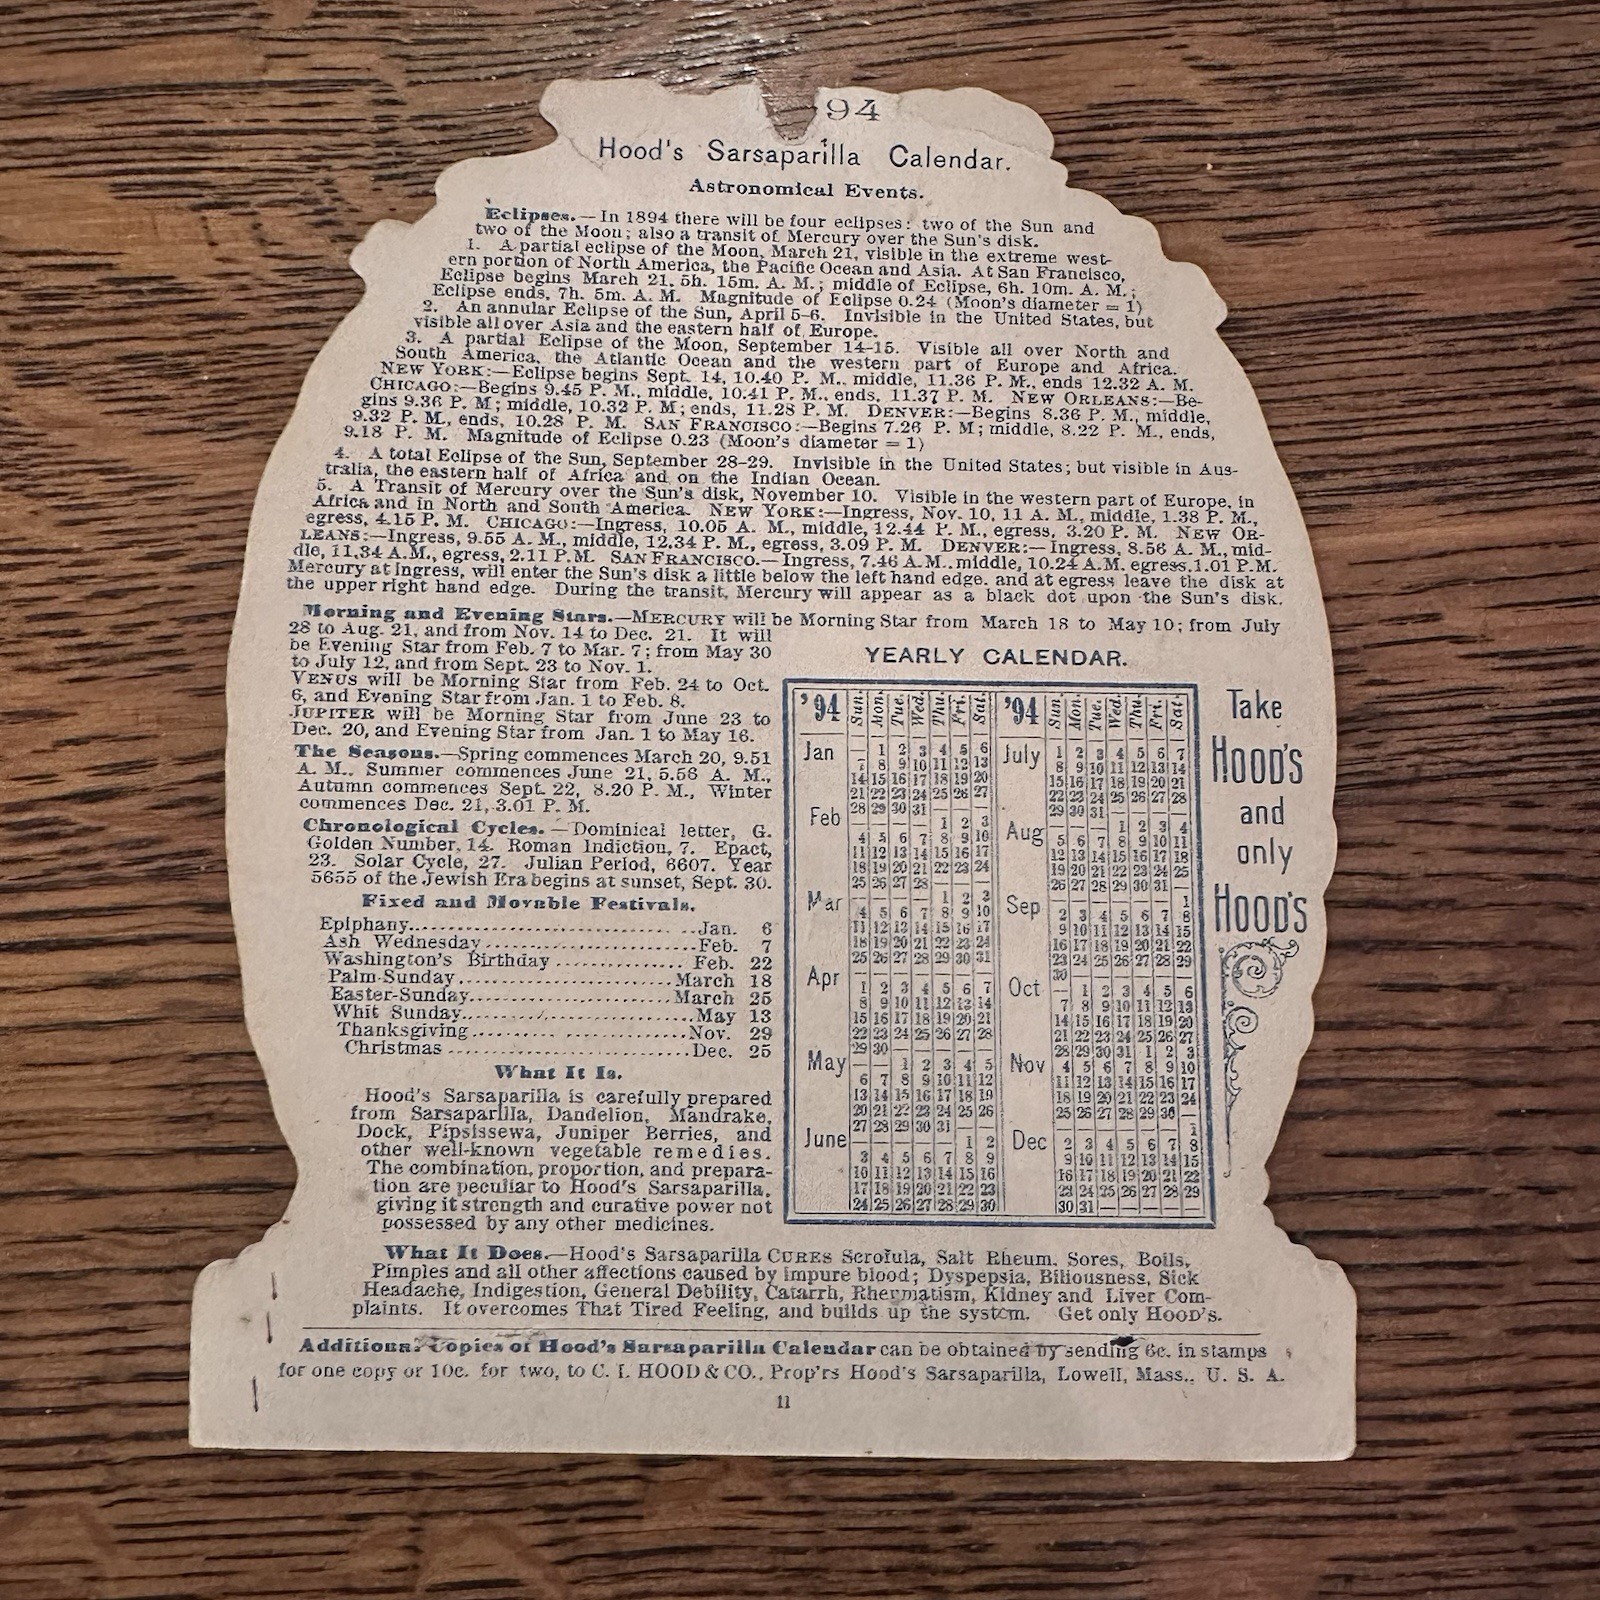 94
Hood's Sarsaparilla Calendar.
Astronomical Events.
Eclipses.—In 1894 there will be four eclipses: two of the Sun and
two of the Moon; also a transit of Mercury over the Sun's disk.
1. A partial eclipse of the Moon, March 21, visible in the extreme west-
ern portion of North America, the Pacific Ocean and Asia. At San Francisco,
Eclipse begins March 21, 5h. 15m. A. M.; middle of Eclipse, 6h. 10m. A. M.;
Eclipse ends, 7h. 5m. A. M. Magnitude of Eclipse 0.24 (Moon's diameter = 1)
2. An annular Eclipse of the Sun, April 5-6. Invisible in the United States, but
visible all over Asia and the eastern half of Europe.
3. A partial Eclipse of the Moon, September 14-15. Visible all over North and
South America, the Atlantic Ocean and the western part of Europe and Africa.
NEW YORK:—Eclipse begins Sept. 14, 10.40 P. M., middle, 11.36 P. M., ends 12.32 A. M.
CHICAGO:—Begins 9.45 P. M., middle, 10.41 P. M., ends, 11.37 P. M. NEW ORLEANS:—Be-
gins 9.36 P. M; middle, 10.32 P. M; ends, 11.28 P. M. DENVER:—Begins 8.36 P. M., middle,
9.32 P. M., ends, 10.28 P. M. SAN FRANCISCO:—Begins 7.26 P. M; middle, 8.22 P. M., ends,
9.18 P. M. Magnitude of Eclipse 0.23 (Moon's diameter = 1)
4. A total Eclipse of the Sun, September 28-29. Invisible in the United States; but visible in Aus-
tralia, the eastern half of Africa and on the Indian Ocean.
5. A Transit of Mercury over the Sun's disk, November 10. Visible in the western part of Europe, in
Africa and in North and South America. NEW YORK:—Ingress, Nov. 10, 11 A. M., middle, 1.38 P. M.,
egress, 4.15 P. M. CHICAGO:—Ingress, 10.05 A. M., middle, 12.44 P. M., egress, 3.20 P. M. NEW OR-
LEANS:—Ingress, 9.55 A. M., middle, 12.34 P. M., egress, 3.09 P. M. DENVER:—Ingress, 8.56 A. M., mid-
dle, 11.34 A.M., egress, 2.11 P.M. SAN FRANCISCO.—Ingress, 7.46 A.M., middle, 10.24 A.M. egress, 1.01 P.M.
Mercury at ingress, will enter the Sun's disk a little below the left hand edge. and at egress leave the disk at
the upper right hand edge. During the transit, Mercury will appear as a black dot upon the Sun's disk.
Morning and Evening Stars.—MERCURY will be Morning Star from March 18 to May 10; from July
28 to Aug. 21, and from Nov. 14 to Dec. 21. It will
be Evening Star from Feb. 7 to Mar. 7; from May 30
to July 12, and from Sept. 23 to Nov. 1.
VENUS will be Morning Star from Feb. 24 to Oct.
6, and Evening Star from Jan. 1 to Feb. 8.
JUPITER will be Morning Star from June 23 to
Dec. 20, and Evening Star from Jan. 1 to May 16.
The Seasons.—Spring commences March 20, 9.51
A. M., Summer commences June 21, 5.56 A. M.,
Autumn commences Sept. 22, 8.20 P. M., Winter
commences Dec. 21, 3.01 P. M.
Chronological Cycles.—Dominical letter, G.
Golden Number, 14. Roman Indiction, 7. Epact,
23. Solar Cycle, 27. Julian Period, 6607. Year
5655 of the Jewish Era begins at sunset, Sept. 30.
Fixed and Movable Festivals.
Epiphany Jan. 6
Ash Wednesday Feb. 7
Washington's Birthday Feb. 22
Palm-Sunday March 18
Easter-Sunday March 25
Whit Sunday May 13
Thanksgiving Nov. 29
Christmas Dec. 25
What It Is.
Hood's Sarsaparilla is carefully prepared
from Sarsaparilla, Dandelion, Mandrake,
Dock, Pipsissewa, Juniper Berries, and
other well-known vegetable remedies.
The combination, proportion, and prepara-
tion are peculiar to Hood's Sarsaparilla,
giving it strength and curative power not
possessed by any other medicines.
YEARLY CALENDAR.
'94 Sun. Mon. Tue. Wed. Thu. Fri. Sat.
Jan — 1 2 3 4 5 6
7 8 9 10 11 12 13
14 15 16 17 18 19 20
21 22 23 24 25 26 27
28 29 30 31 — — —
Feb — — — — 1 2 3
4 5 6 7 8 9 10
11 12 13 14 15 16 17
18 19 20 21 22 23 24
25 26 27 28 — — —
Mar — — — — 1 2 3
4 5 6 7 8 9 10
11 12 13 14 15 16 17
18 19 20 21 22 23 24
25 26 27 28 29 30 31
Apr 1 2 3 4 5 6 7
8 9 10 11 12 13 14
15 16 17 18 19 20 21
22 23 24 25 26 27 28
29 30 — — — — —
May — — 1 2 3 4 5
6 7 8 9 10 11 12
13 14 15 16 17 18 19
20 21 22 23 24 25 26
27 28 29 30 31 — —
June — — — — — 1 2
3 4 5 6 7 8 9
10 11 12 13 14 15 16
17 18 19 20 21 22 23
24 25 26 27 28 29 30
'94 Sun. Mon. Tue. Wed. Thu. Fri. Sat.
July 1 2 3 4 5 6 7
8 9 10 11 12 13 14
15 16 17 18 19 20 21
22 23 24 25 26 27 28
29 30 31 — — — —
Aug — — — 1 2 3 4
5 6 7 8 9 10 11
12 13 14 15 16 17 18
19 20 21 22 23 24 25
26 27 28 29 30 31 —
Sep — — — — — — 1
2 3 4 5 6 7 8
9 10 11 12 13 14 15
16 17 18 19 20 21 22
23 24 25 26 27 28 29
30 — — — — — —
Oct — 1 2 3 4 5 6
7 8 9 10 11 12 13
14 15 16 17 18 19 20
21 22 23 24 25 26 27
28 29 30 31 1 2 3
Nov 4 5 6 7 8 9 10
11 12 13 14 15 16 17
18 19 20 21 22 23 24
25 26 27 28 29 30 —
Dec — — — — — — 1
2 3 4 5 6 7 8
9 10 11 12 13 14 15
16 17 18 19 20 21 22
23 24 25 26 27 28 29
30 31 — — — — —
Take
HOOD'S
and
only
HOOD'S
What It Does.—Hood's Sarsaparilla CURES Scrofula, Salt Rheum, Sores, Boils,
Pimples and all other affections caused by impure blood; Dyspepsia, Biliousness, Sick
Headache, Indigestion, General Debility, Catarrh, Rheumatism, Kidney and Liver Com-
plaints. It overcomes That Tired Feeling, and builds up the system. Get only HOOD'S.
Additional Copies of Hood's Sarsaparilla Calendar can be obtained by sending 6c. in stamps
for one copy or 10c. for two, to C. I. HOOD & CO., Prop'rs Hood's Sarsaparilla, Lowell, Mass., U. S. A.
11